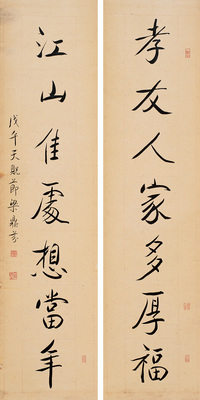 孝友人家多厚福
江山佳處想當年
戊午天貺節梁鼎芬